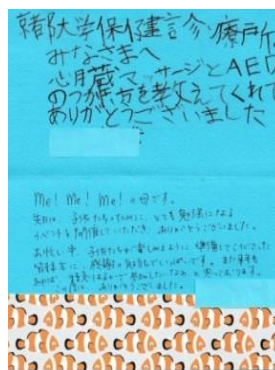 京都大学保健診療所
みなさまへ
心臓マッサージとAED
のつかい方を教えてくれて
ありがとうございました
Me! Me! Me! の母です。
先日は、子供たちのために、とても勉強になる
イベントを開催していただき、ありがとうございました。
お忙しい中、子供たちが楽しめるように準備してくださった
皆様方に、感謝の気持ちでいっぱいです。また来年も
あれば、特急はるかで参加したいなぁ、と思っております。
この度は、ありがとうございました。